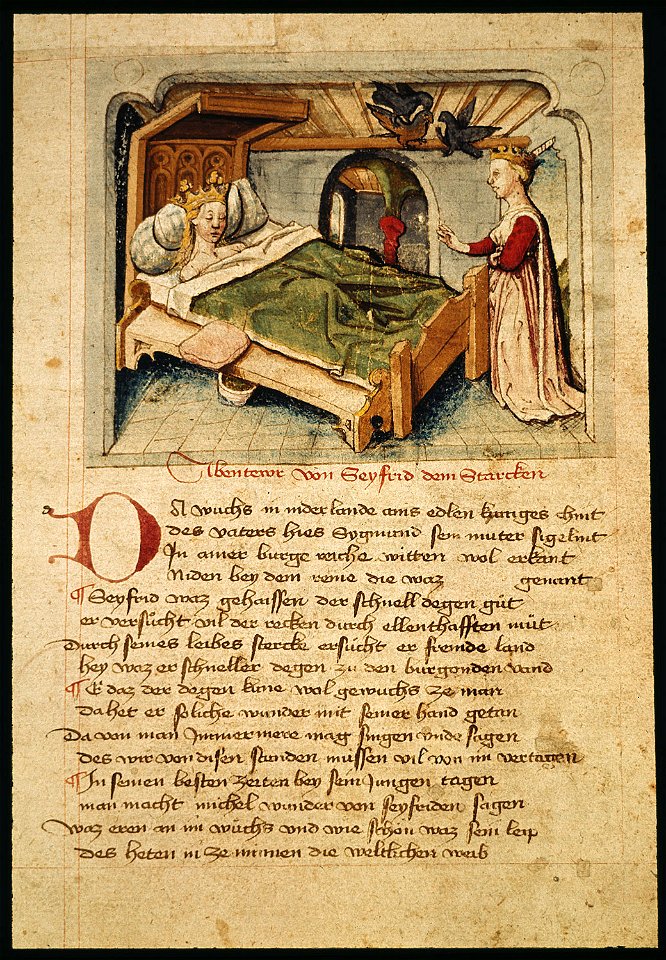 Abentewr von Seyfrid dem Starcken
a
DA wuchs in niderlande ains edlen kuniges chint
des vaters hies Sygmund sein muter sigelint
In ainer burge reiche witten wol erkant
Niden bey dem reine die waz genant
¶ Seyfrid waz gehaissen der schnell degen gůt
er versůcht vil der recken durch ellenthafften můt
Durch seines leibes stercke ersůcht er fremde land
hey waz er schneller degen zu den burgonden vand
¶ E daz der degen küne wol gewuchs ze man
da het er soliche wunder mit seiner hand getan
Da von man Immermere mag singen vnde sagen
des wir von disen stunden müssen vil von im vertagen
¶ In seinen besten zeiten bey sein Jungen tagen
man macht michel wunder von seyfriden sagen
waz eren an im wůchs vnd wie schön waz sein leip
des heten in ze minnen die weltlichen weib